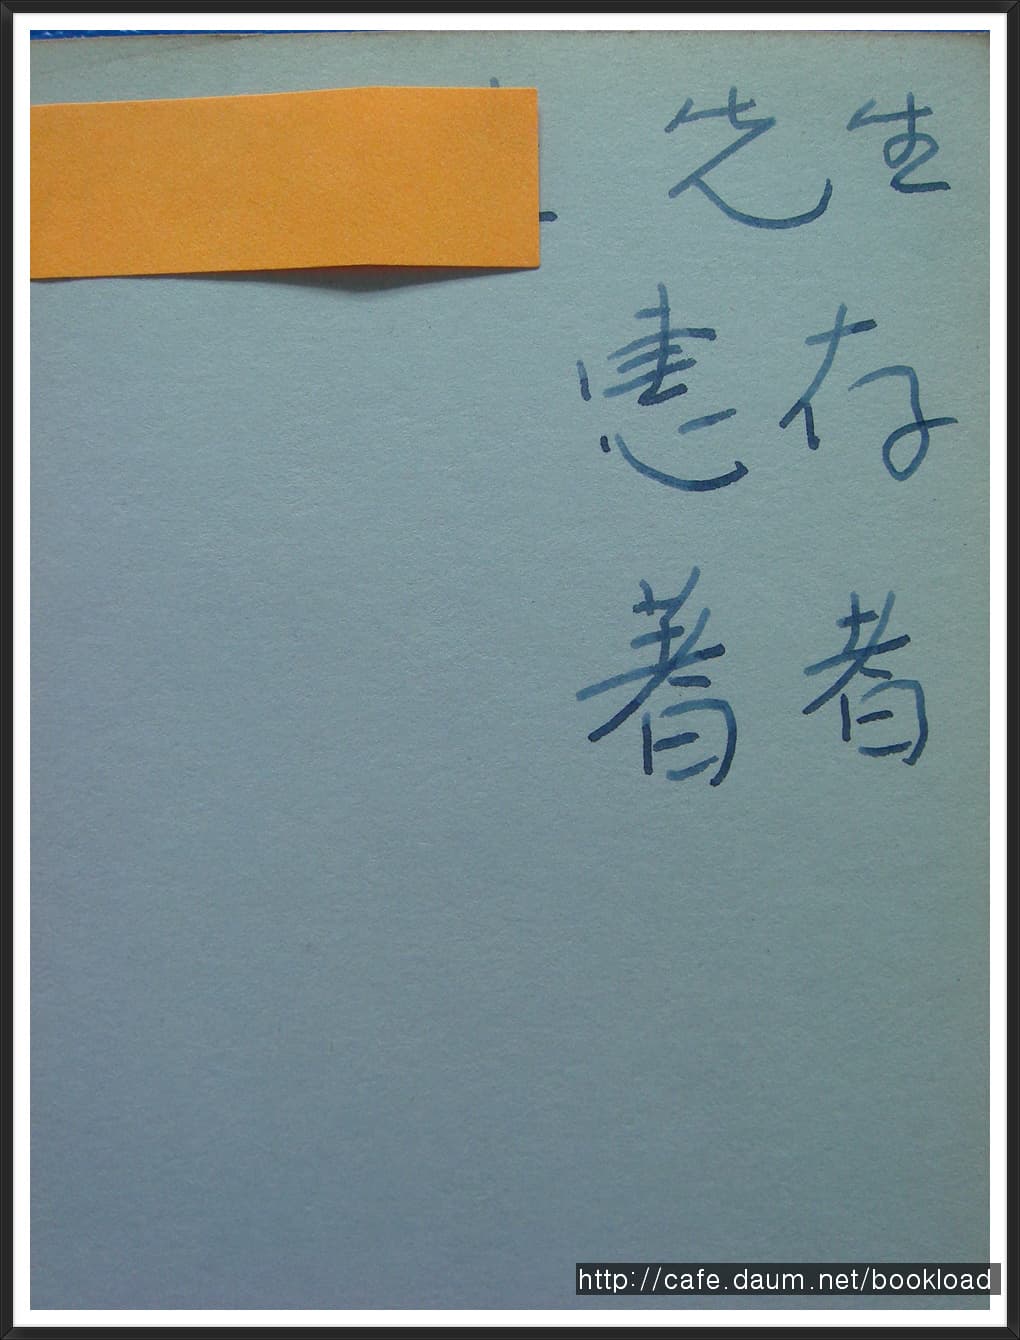 先生
惠存
著者
http://cafe.daum.net/bookload